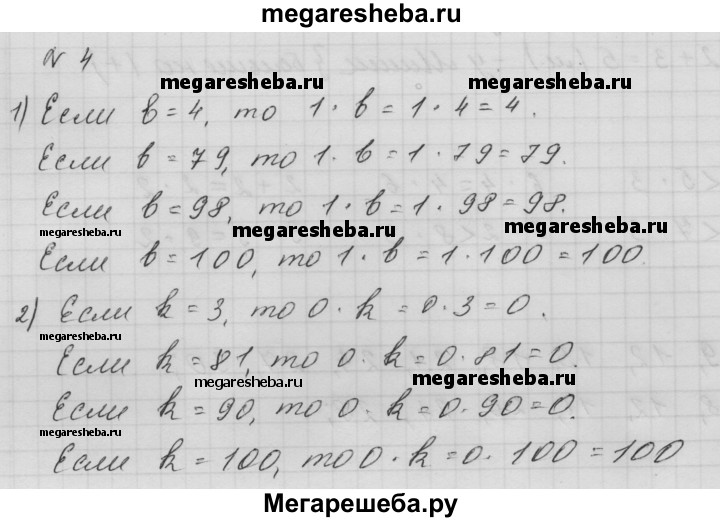 megaresheba.ru
№ 4
megaresheba.ru
1) Если в = 4, то 1 · в = 1 · 4 = 4.
Если в = 79, то 1 · в = 1 · 79 = 79.
Если в = 98, то 1 · в = 1 · 98 = 98.
megaresheba.ru megaresheba.ru megaresheba.ru
Если в = 100, то 1 · в = 1 · 100 = 100.
2) Если k = 3, то 0 · k = 0 · 3 = 0.
Если k = 81, то 0 · k = 0 · 81 = 0.
megaresheba.ru megaresheba.ru
Если k = 90, то 0 · k = 0 · 90 = 0.
megaresheba.ru
Если k = 100, то 0 · k = 0 · 100 = 100
Мегарешеба.ру